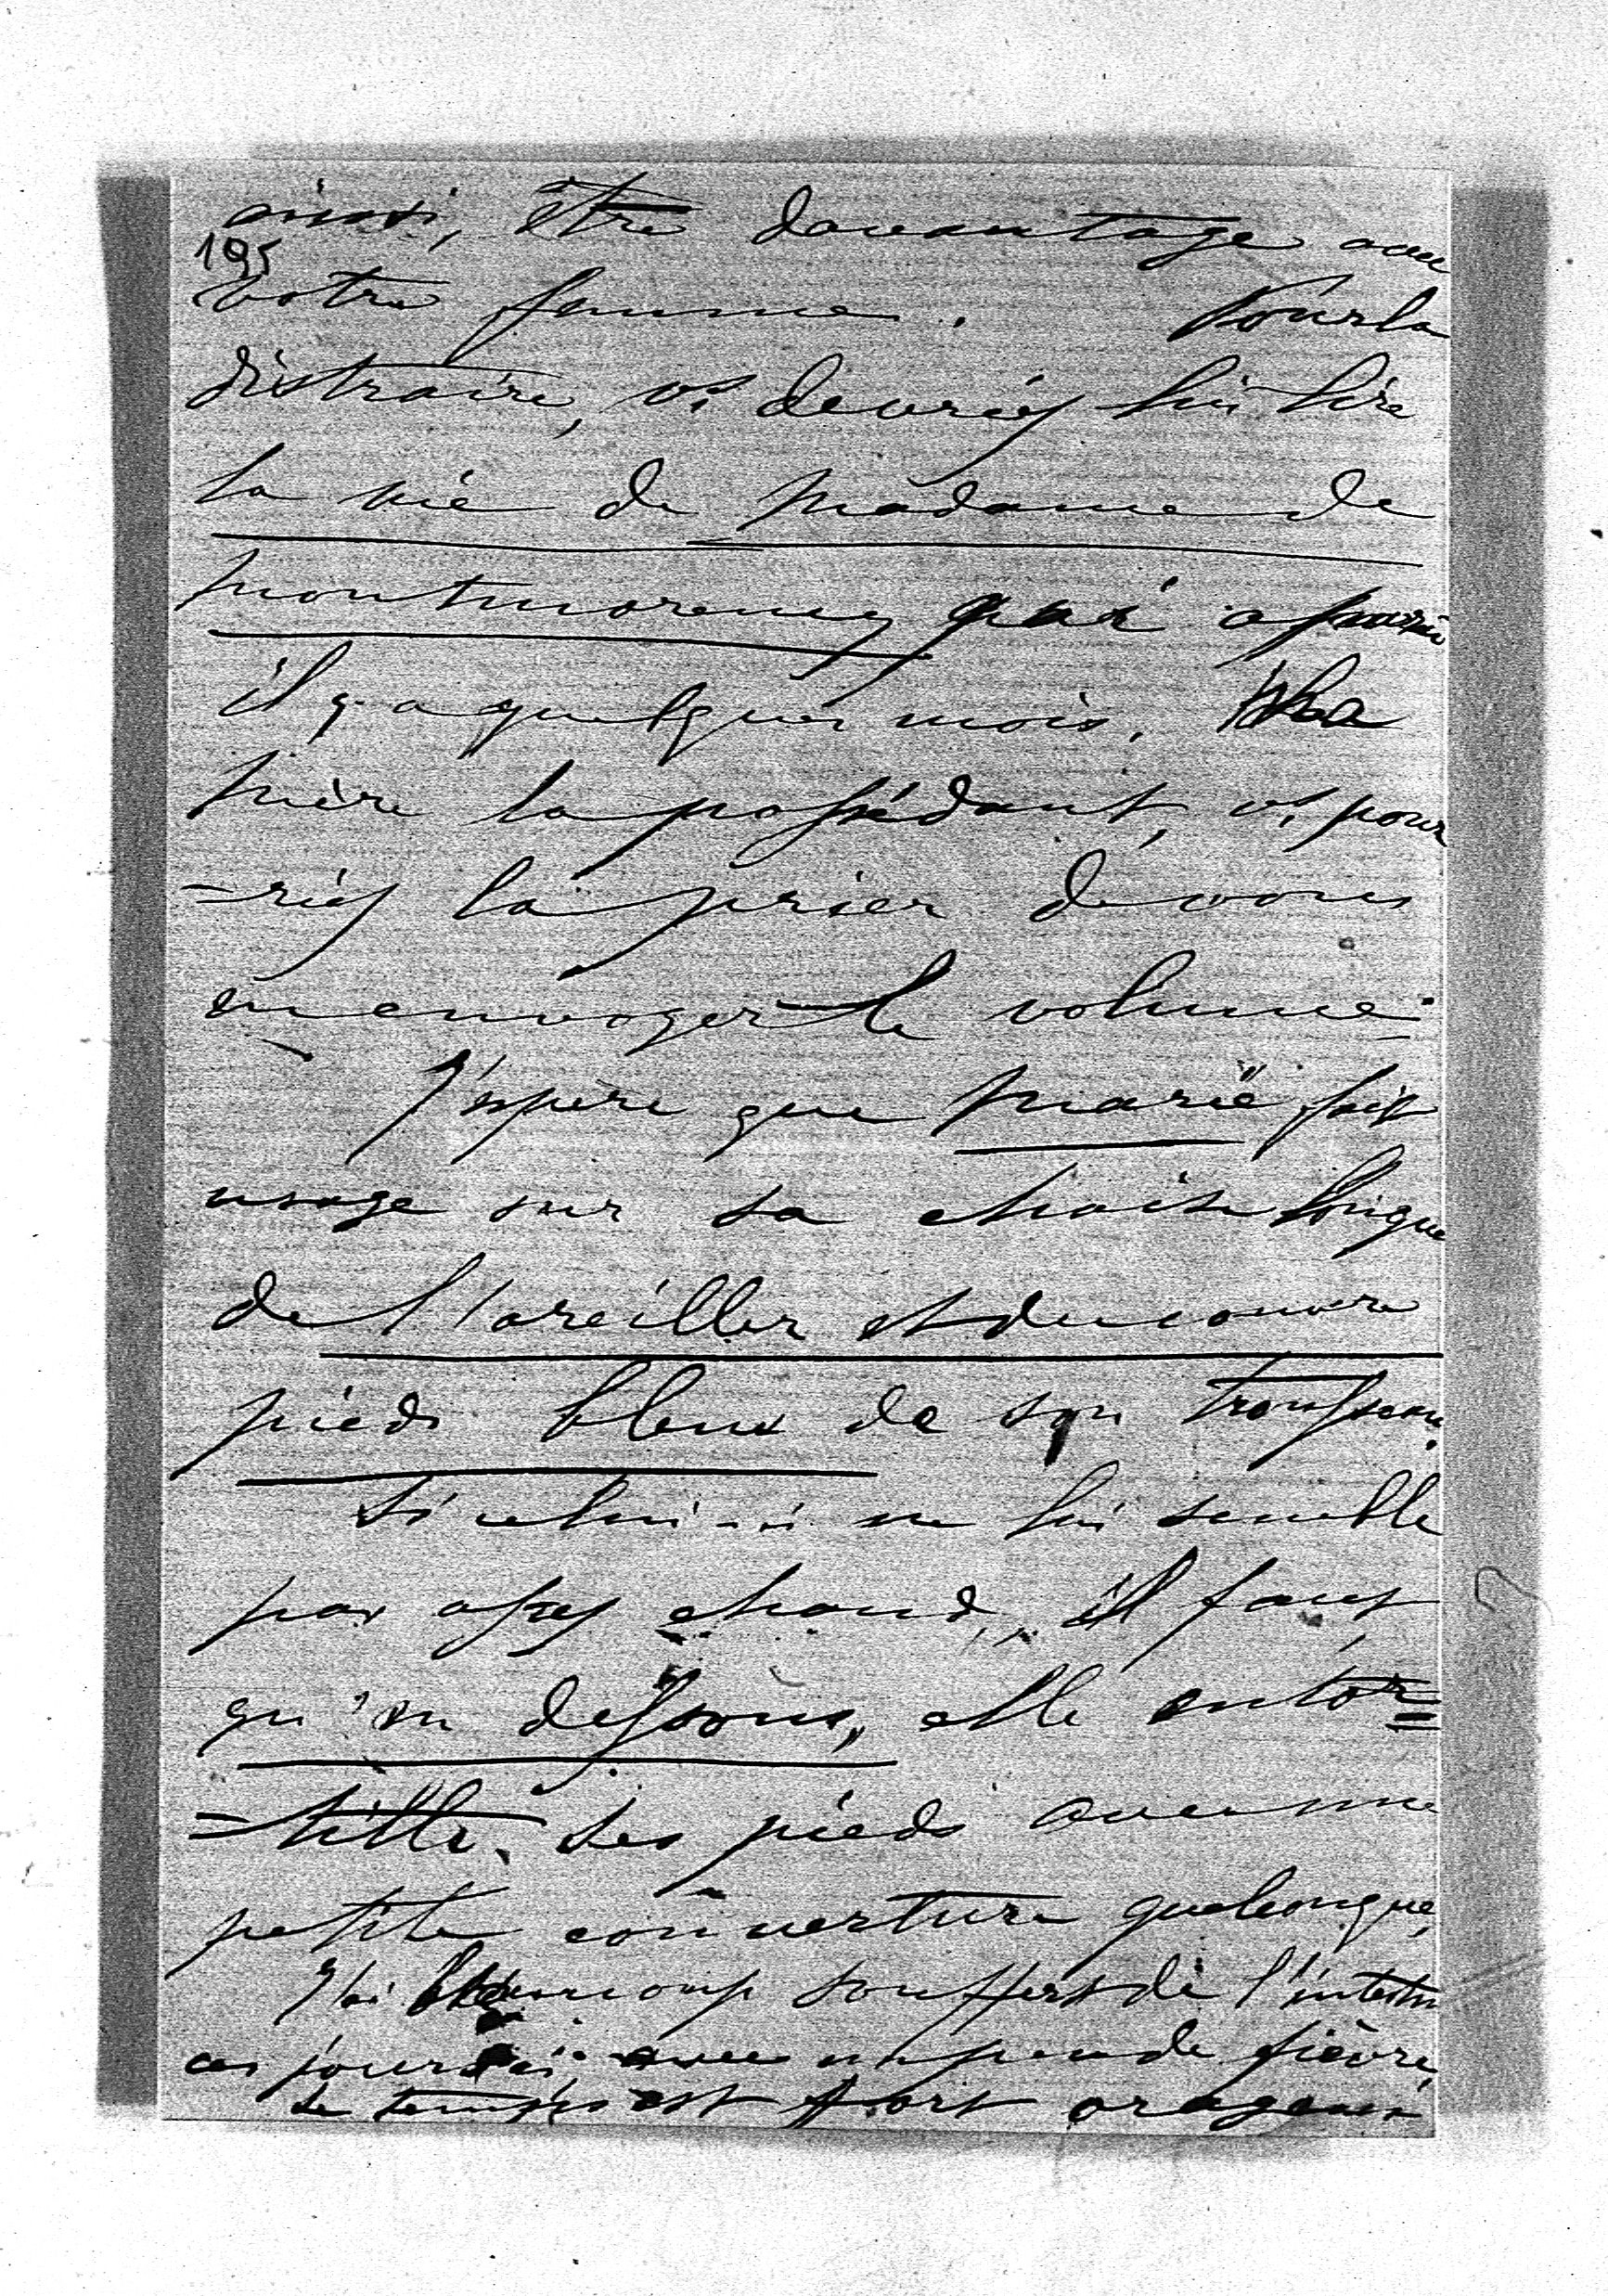 ainsi, être davantage avec
195
votre femme. Pour la
distraire, vs devriez lui lire
la vie de Madame de
Montmorency qui a paru
il y a quelques mois. Ma
mère la possédant, vs pour
=riez la prier de vous
en envoyer le volume.
J'espère que Marie fait
usage sur sa chaise longue
de l'oreiller et du couvre
pieds bleus de son trousseau.
Si celui-ci ne lui semble
pas assez chaud, il faut
qu'en dessous, elle entor=
=tille ses pieds avec une
petite couverture quelconque,
J'ai beaucoup souffert de l'intestin
ces jours ci, avec un peu de fièvre,
Le temps est fort orageux